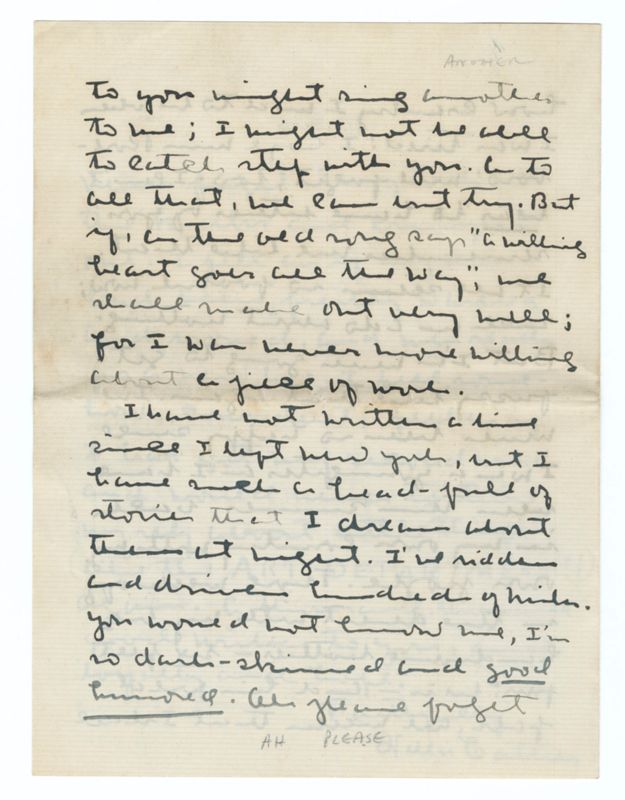 ANOTHER
to you might sing another
to me; I might not be able
to catch step with you. As to
all that, we can but try. But
if, as the old song says "a willing
heart goes all the way", we
shall make out very well;
for I was never more willing
about a piece of work.
I have not written a line
since I left New York, but I
have such a head-full of
stories that I dream about
them at night. I've ridden
and driven hundreds of miles.
You would not know me, I'm
so dark-skinned and good
humored. Ah please forget
AH PLEASE